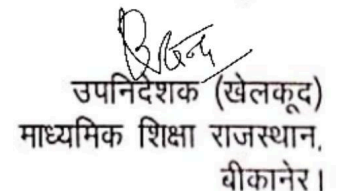 उपनिदेशक (खेलकूद)
माध्यमिक शिक्षा राजस्थान,
बीकानेर।